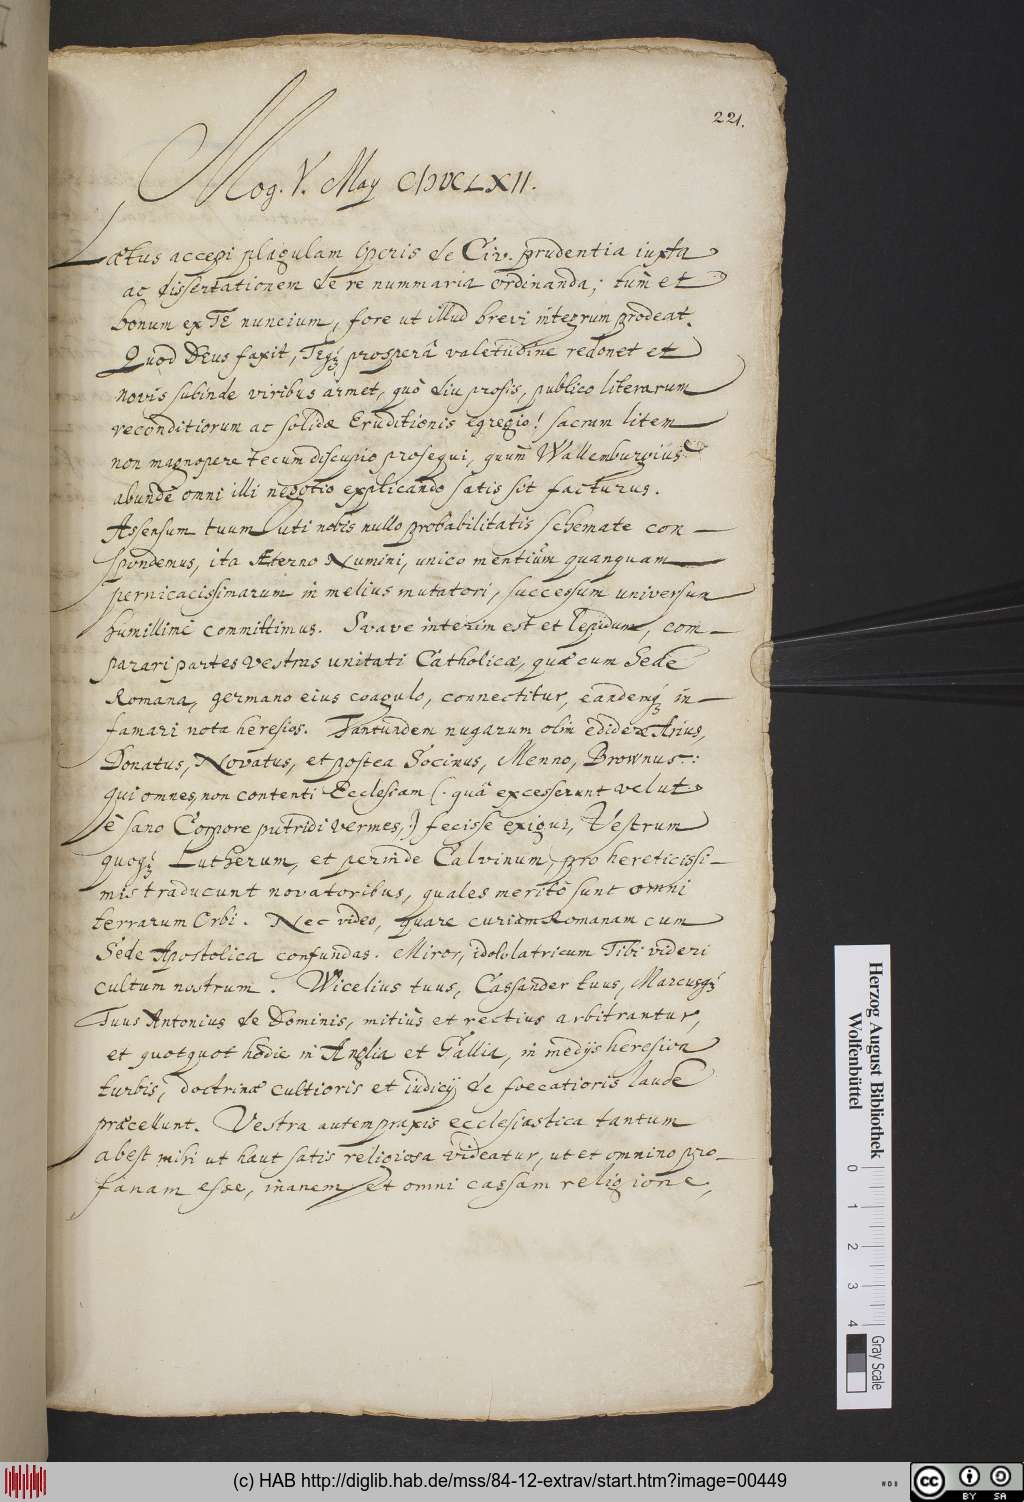 221.
Mog. V. May CIↃIↃCLXII.
Lætus accepi plagulam operis de Civ. prudentia iuxta
ac dissertationem de re nummaria ordinanda; tum et
bonum ex TE nuncium, fore ut illud brevi integrum prodeat.
Quod DEUS faxit, TEq; prosperâ valetudine redonet et
novis subinde viribus armet, quô diu prosis, publico literarum
reconditiorum ac solidæ Eruditionis egregio! sacrum litem
non magnopere tecum discupio prosequi, quum Wallemburgius
abundê omni illi negotio explicando satis sit facturus.
Assensum tuum uti nobis nullo probabilitatis schemate con-
spondemus, ita Æterno Numini, unico mentium quanquam
pernicacissimarum in melius mutatori, successum universum
humillimê committimus. Suave interim est et lepidum, com-
parari partes vestras unitati Catholicæ, quæ cum Sede
Romana, germano eius coagulo, connectitur, eandemq; in-
famari nota heresios. Tantundem nugarum olim edidere Arius,
Donatus, Novatus, et postea Socinus, Menno, Brownus:
qui omnes, non contenti Ecclesiam (quâ excesserunt velut
ê sano Corpore putridi vermes,) fecisse exigui, Vestrum
quoq; Lutherum, et perinde Calvinum, pro hereticissi-
mis traducunt novatoribus, quales meritô sunt omni
terrarum Orbi. Nec video, quare curiam Romanam cum
Sede Apostolica confundas. Miror, idololatricum Tibi videri
cultum nostrum. Wicelius tuus, Cassander tuus, Marcusq;
Tuus Antonius de Dominis, mitius et rectius arbitrantur,
et quotquot hodie in Anglia et Gallia, in medijs heresion
turbis, doctrinæ cultioris et iudicij defoecatioris laude
præcellunt. Vestra autem praxis ecclesiastica tantum
abest mihi ut haut satis religiosa videatur, ut et omnino pro-
fanam esse, inanem et omni cassam religione,
Herzog August Bibliothek
Wolfenbüttel
0 1 2 3 4
Gray Scale
(c) HAB http://diglib.hab.de/mss/84-12-extrav/start.htm?image=00449
cc BY SA